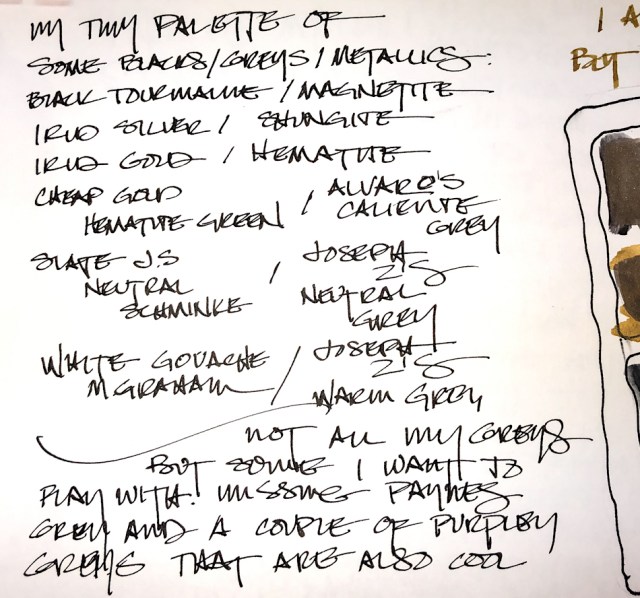 MY TINY PALETTE OF
SOME BLACKS/GREYS/METALLICS:
BLACK TOURMALINE / MAGNETITE
IRID SILVER / SHUNGITE
IRID GOLD / HEMATITE
CHEAP GOLD / ALVARO'S
HEMATITE GREEN CALIENTE
GREY
SLATE J.S / JOSEPH
NEUTRAL Z'S
SCHMINKE NEUTRAL
GREY
WHITE GOUACHE / JOSEPH
M GRAHAM Z'S
WARM GREY
NOT ALL MY GREYS
BUT SOME I WANT TO
PLAY WITH. MISSING PAYNES
GREY AND A COUPLE OF PURPLEY
GREYS THAT ARE ALSO COOL
I A
BUT